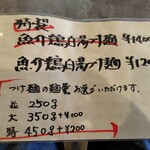 特製
魚介鶏白湯つけ麺
魚介鶏白湯つけ麺
つけ麺の麺量お選びいただけます。
並 250g
大 350g ¥100
特 450g ¥200